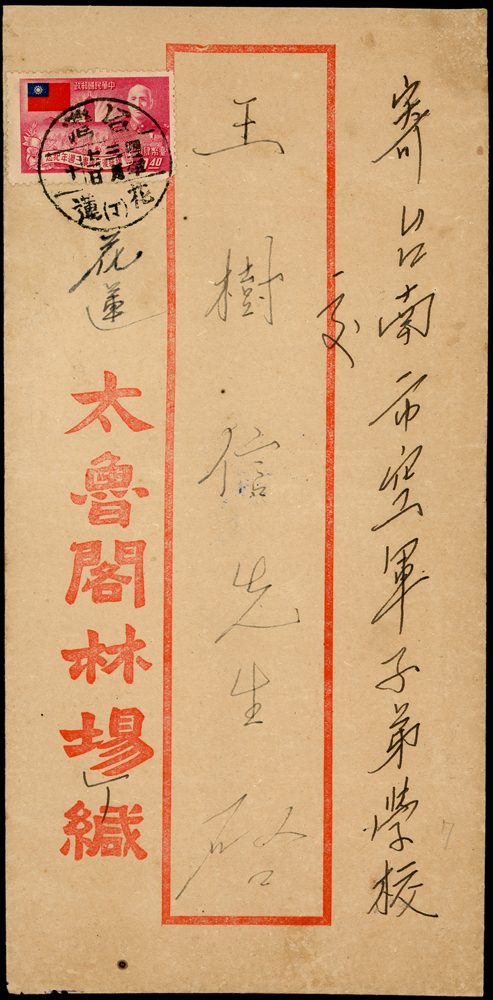 寄台南市空軍子弟學校
交
王樹信先生啟
花蓮
太魯閣林場緘
中華民國郵政
台灣
花蓮
(丁)